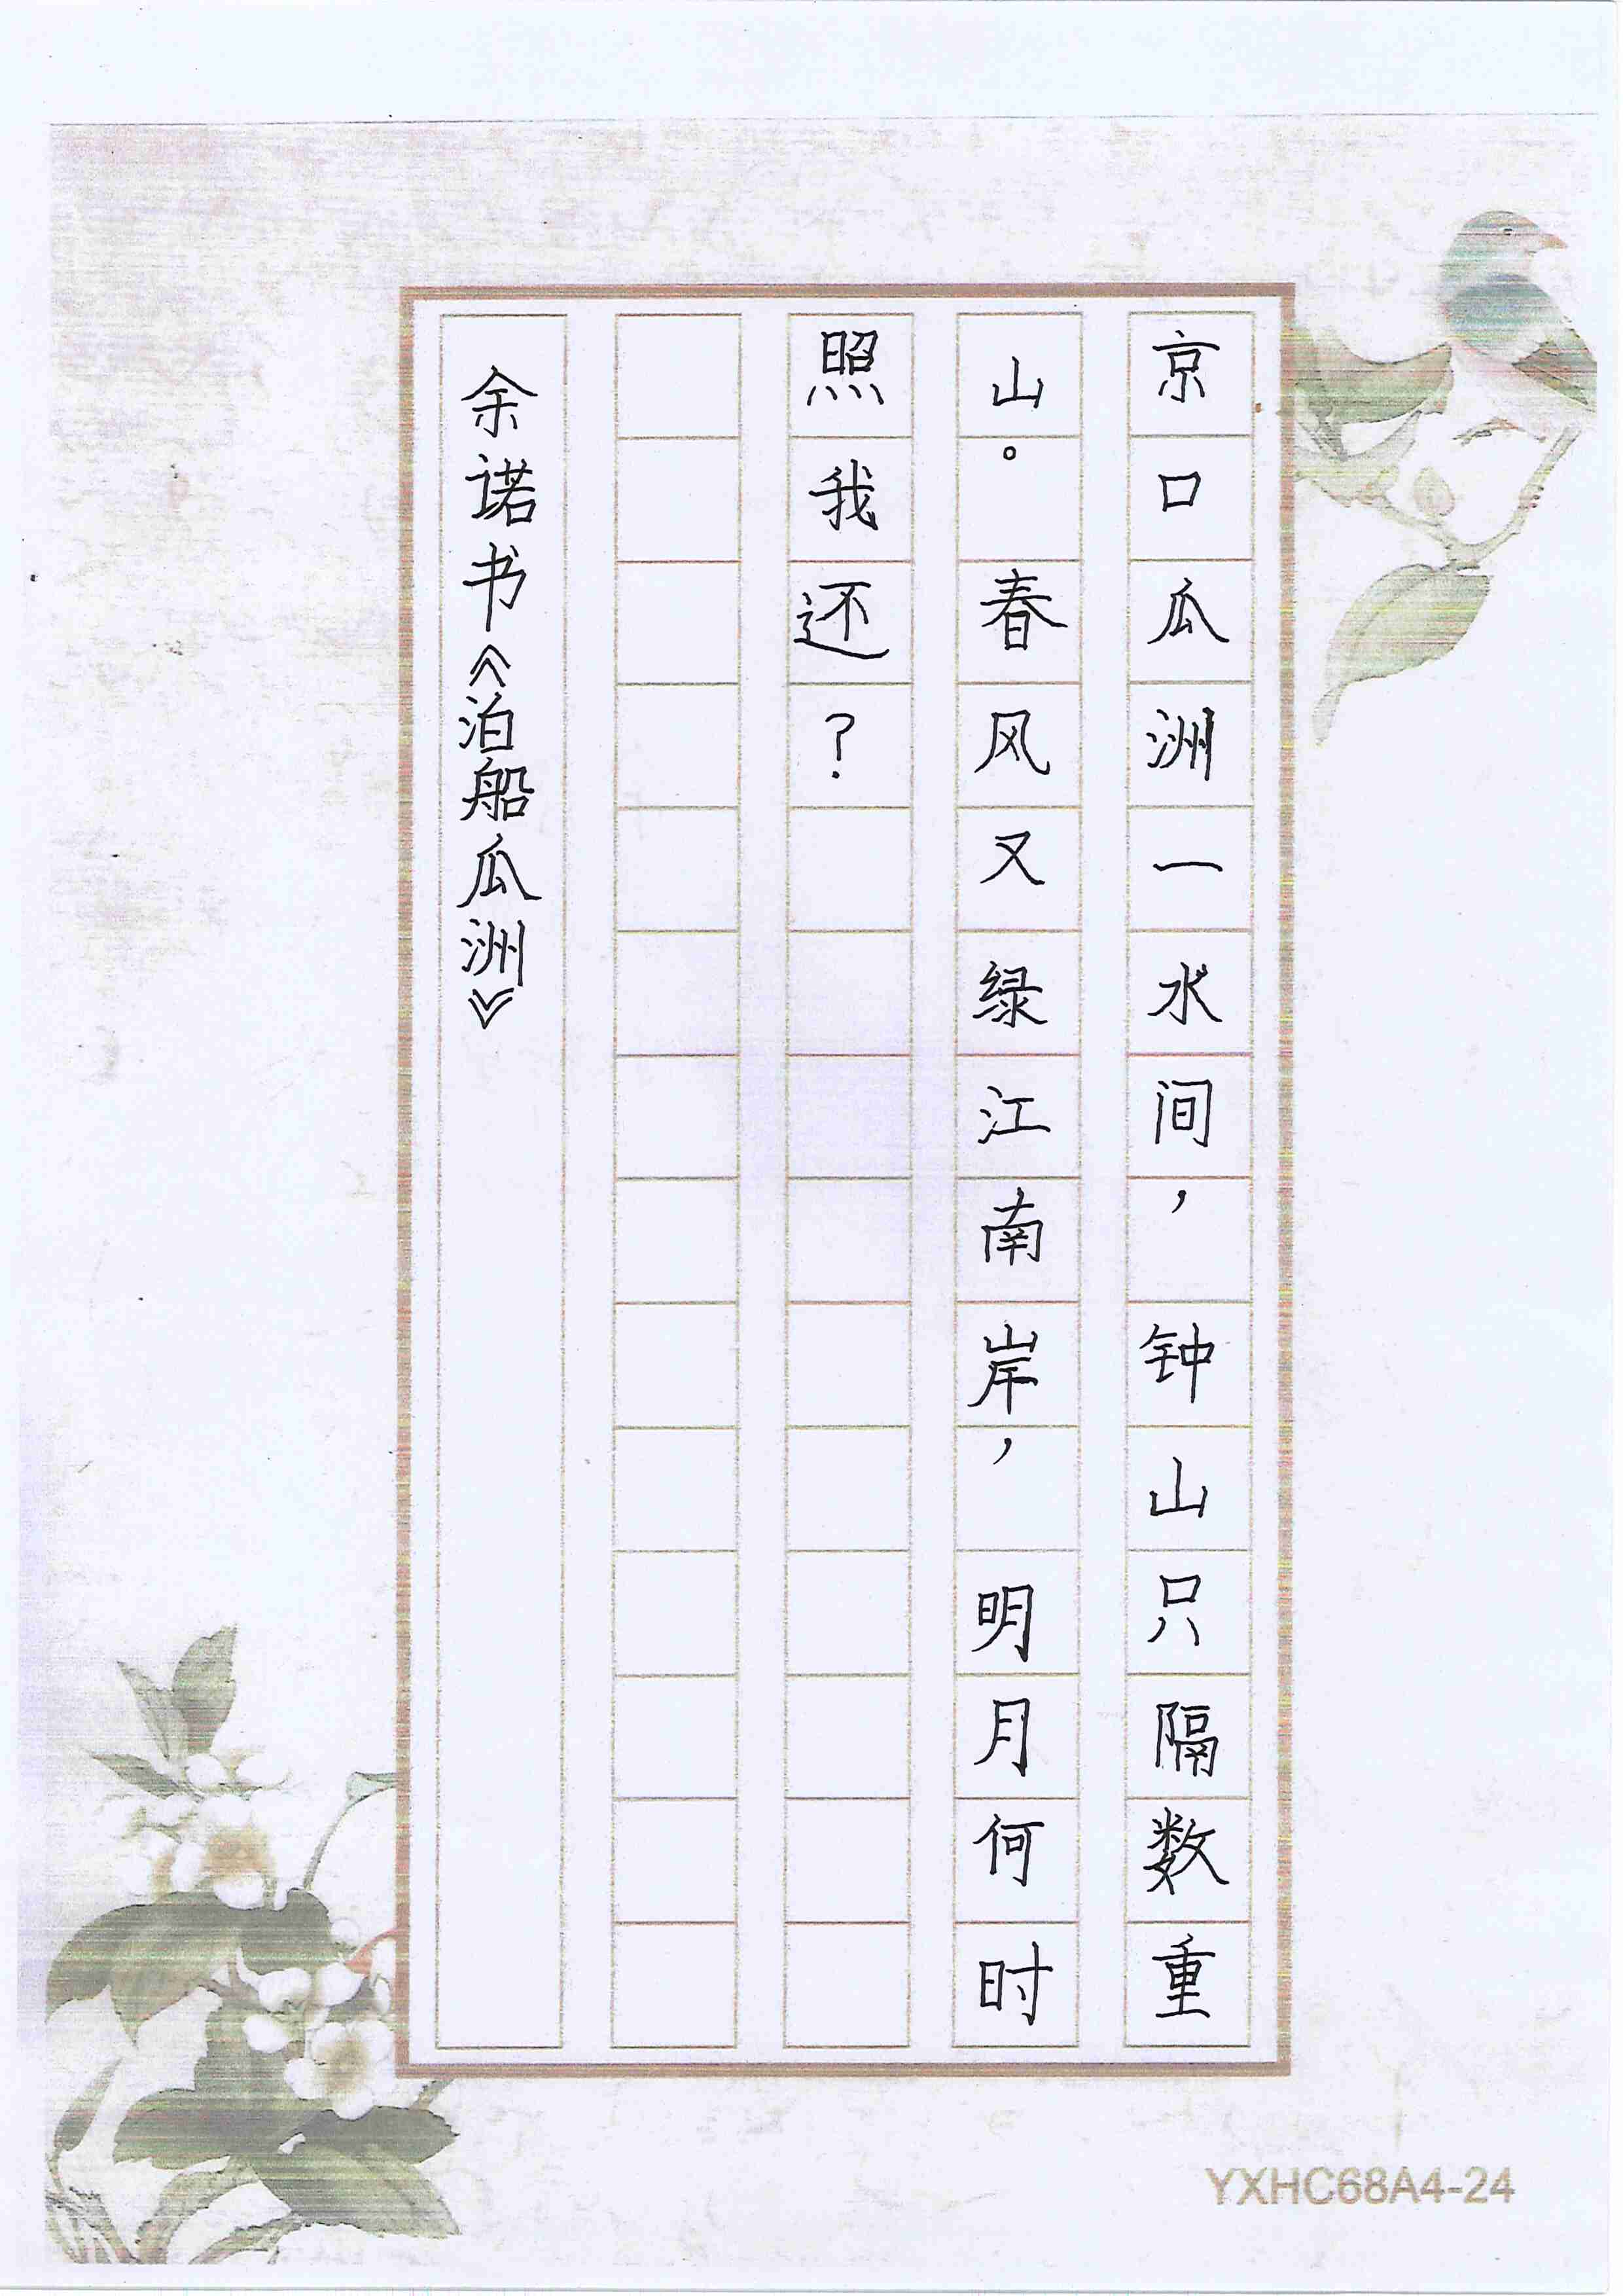 京口瓜洲一水间，钟山只隔数重
山。春风又绿江南岸，明月何时
照我还？
余诺书《泊船瓜洲》
YXHC68A4-24